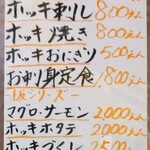 ホッキ刺し 800えん
ホッキ焼き 800えん
ホッキおにぎり 500えん
お刺身定食 1800えん
丼シリーズ
マグロ・サーモン 2,000えん
ホッキホタテ 2,000えん
ホッキづくし